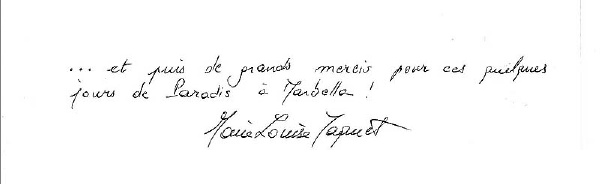 ... et puis de grands mercis pour ces quelques
jours de Paradis à Marbella !
Marie Louise Jaquet